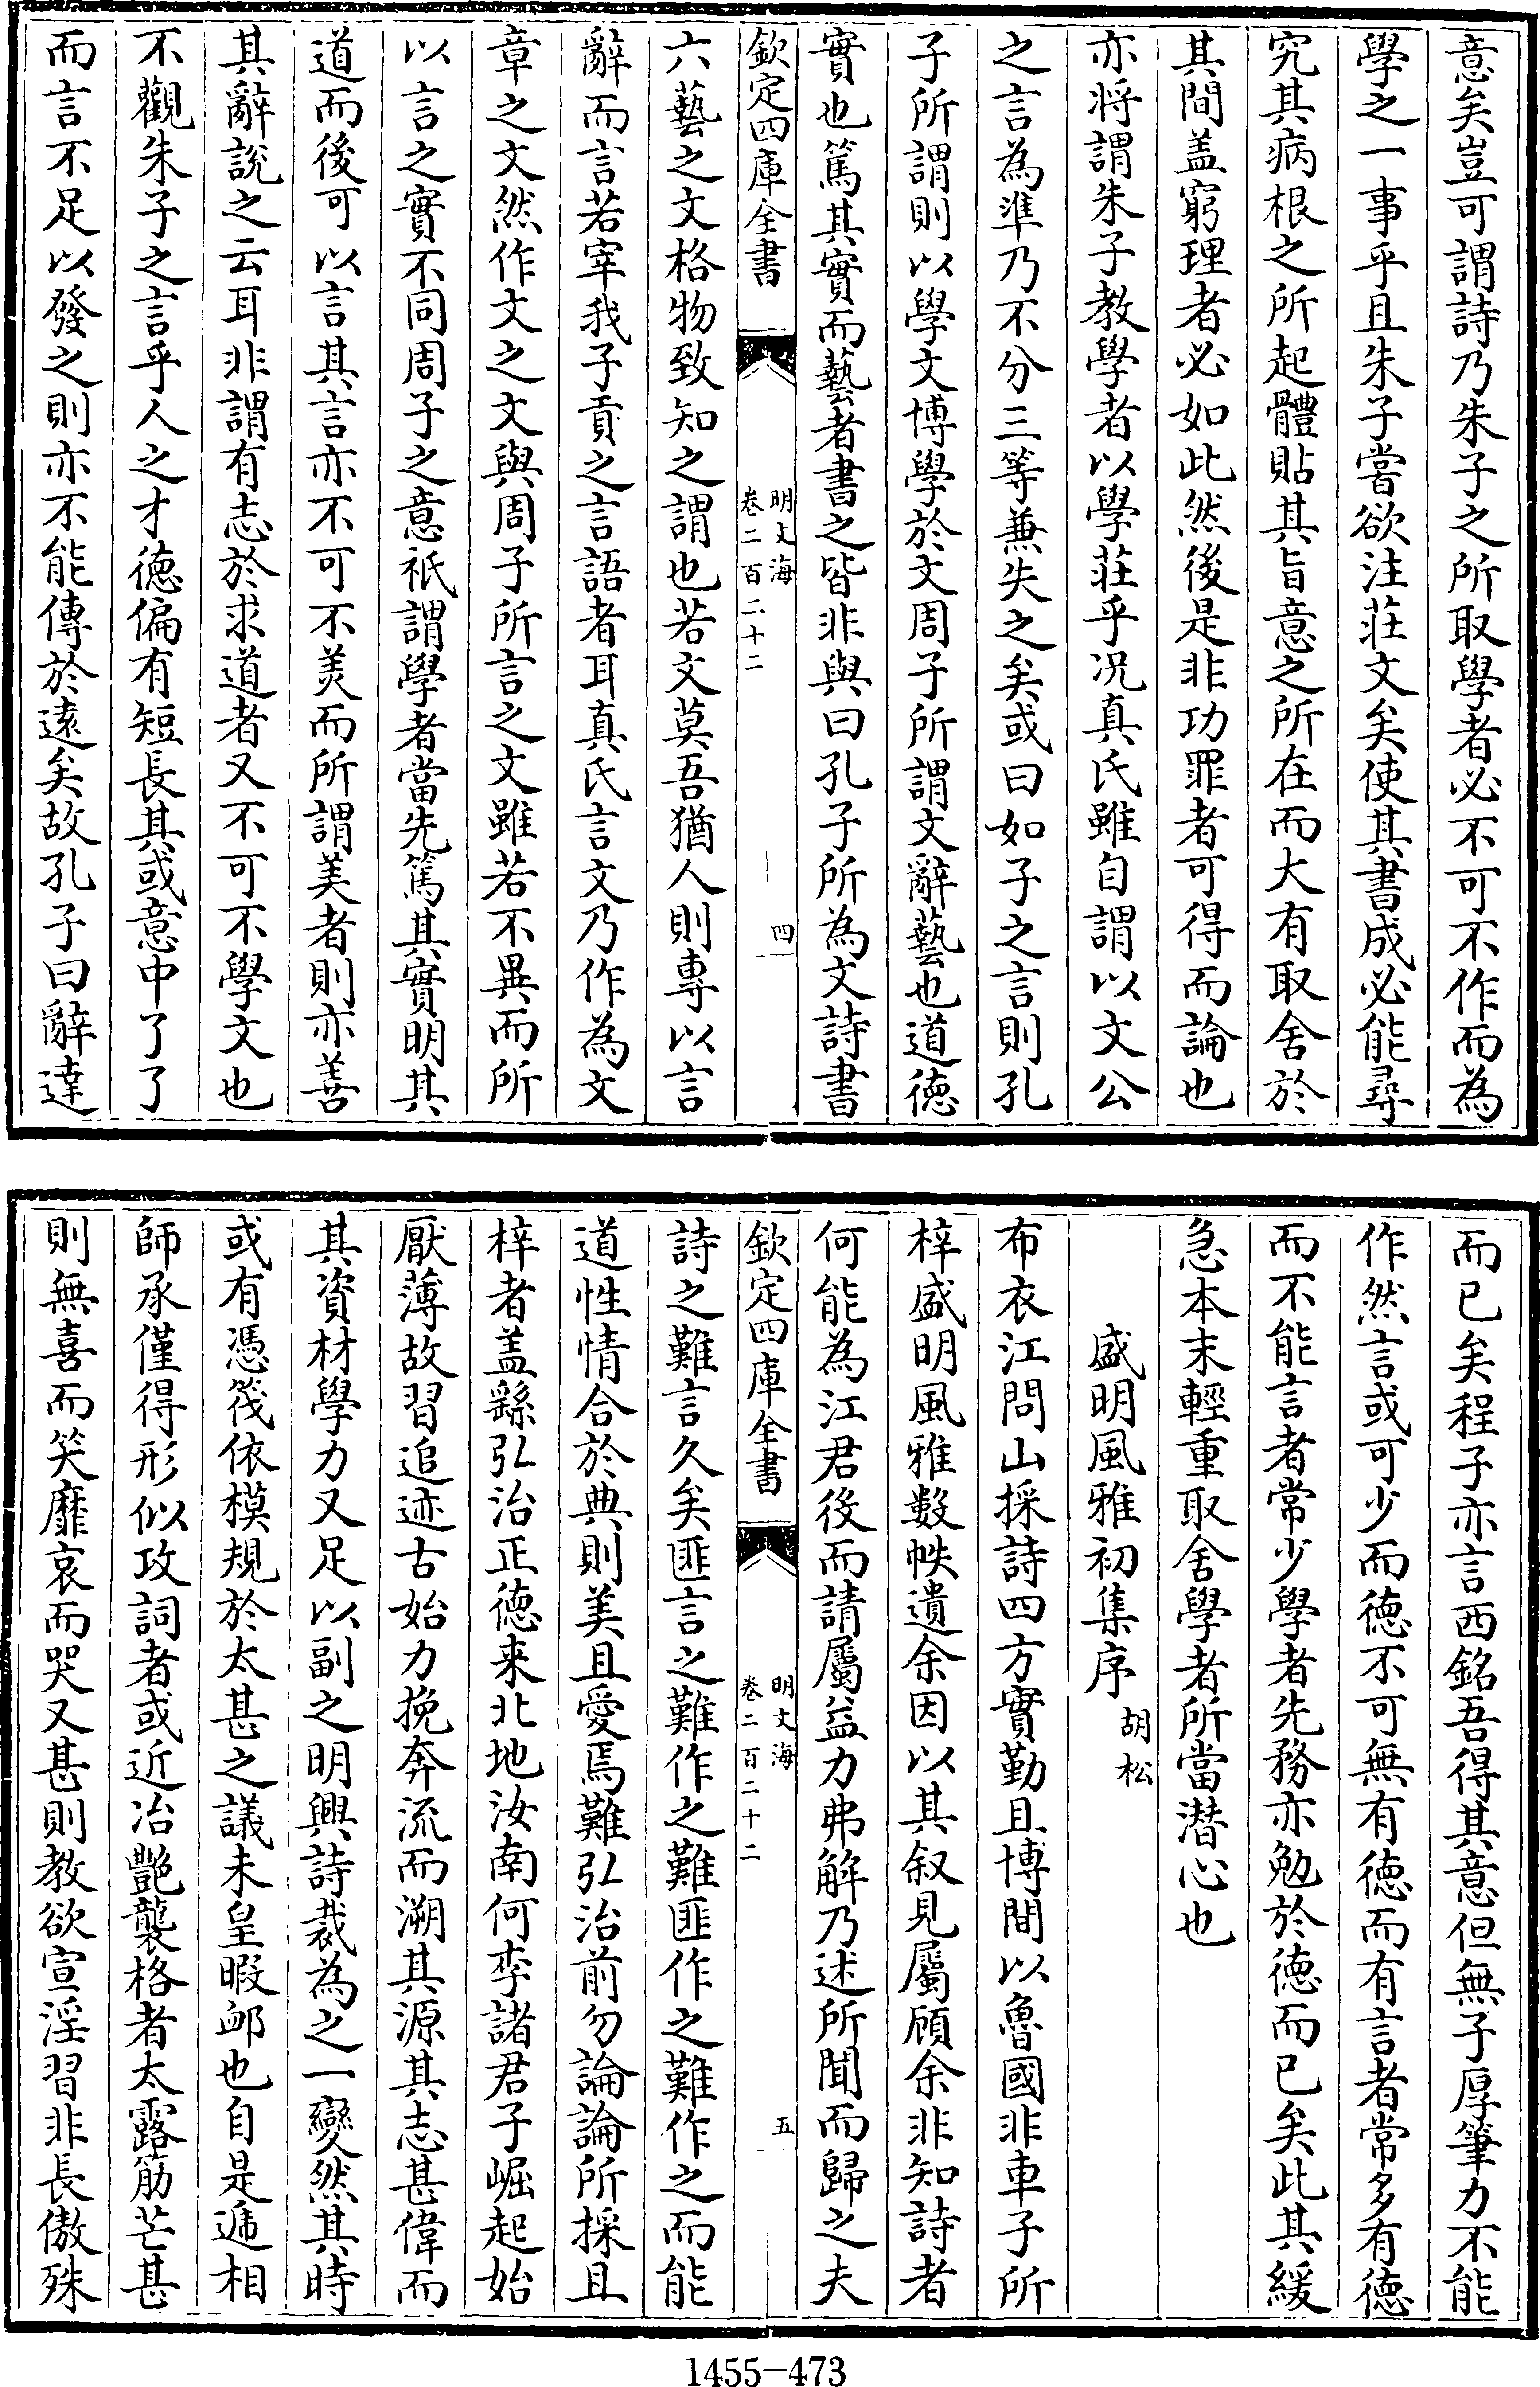 意矣豈可謂詩乃朱子之所取學者必不可不作而為
學之一事乎且朱子嘗欲注莊文矣使其書成必能尋
究其病根之所起體貼其旨意之所在而大有取舍於
其間盖窮理者必如此然後是非功罪者可得而論也
亦將謂朱子教學者以學莊乎况真氏雖自謂以文公
之言為準乃不分三等兼失之矣或曰如子之言則孔
子所謂則以學文博學於文周子所謂文辭藝也道徳
實也篤其實而藝者書之皆非與曰孔子所為文詩書
欽定四庫全書
明文海
卷二百二十二
四
六藝之文格物致知之謂也若文莫吾猶人則專以言
辭而言若宰我子貢之言語者耳真氏言文乃作為文
章之文然作文之文與周子所言之文雖若不異而所
以言之實不同周子之意袛謂學者當先篤其實明其
道而後可以言其言亦不可不羙而所謂美者則亦善
其辭說之云耳非謂有志於求道者又不可不學文也
不觀朱子之言乎人之才徳偏有短長其或意中了了
而言不足以發之則亦不能傳於逺矣故孔子曰辭達
而已矣程子亦言西銘吾得其意但無子厚筆力不能
作然言或可少而徳不可無有徳而有言者常多有徳
而不能言者常少學者先務亦勉於徳而已矣此其緩
急本末輕重取舍學者所當潜心也
盛明風雅初集序 胡松
布衣江問山採詩四方實勤且博間以魯國非車子所
梓盛明風雅數帙遺余因以其叙見屬顧余非知詩者
何能為江君後而請屬益力弗解乃述所聞而歸之夫
欽定四庫全書
明文海
卷二百二十二
五
詩之難言久矣匪言之難作之難匪作之難作之而能
道性情合於典則美且愛焉難弘治前勿論論所採且
梓者盖繇弘治正徳来北地汝南何李諸君子崛起始
厭薄故習追迹古始力挽奔流而溯其源其志甚偉而
其資材學力又足以副之明興詩裁為之一變然其時
或有憑筏依模規於太甚之議未皇暇䘏也自是逓相
師承僅得形似攻詞者或近冶艷襲格者太露筋芒甚
則無喜而笑靡哀而哭又甚則教欲宣淫習非長傲殊
1455-473